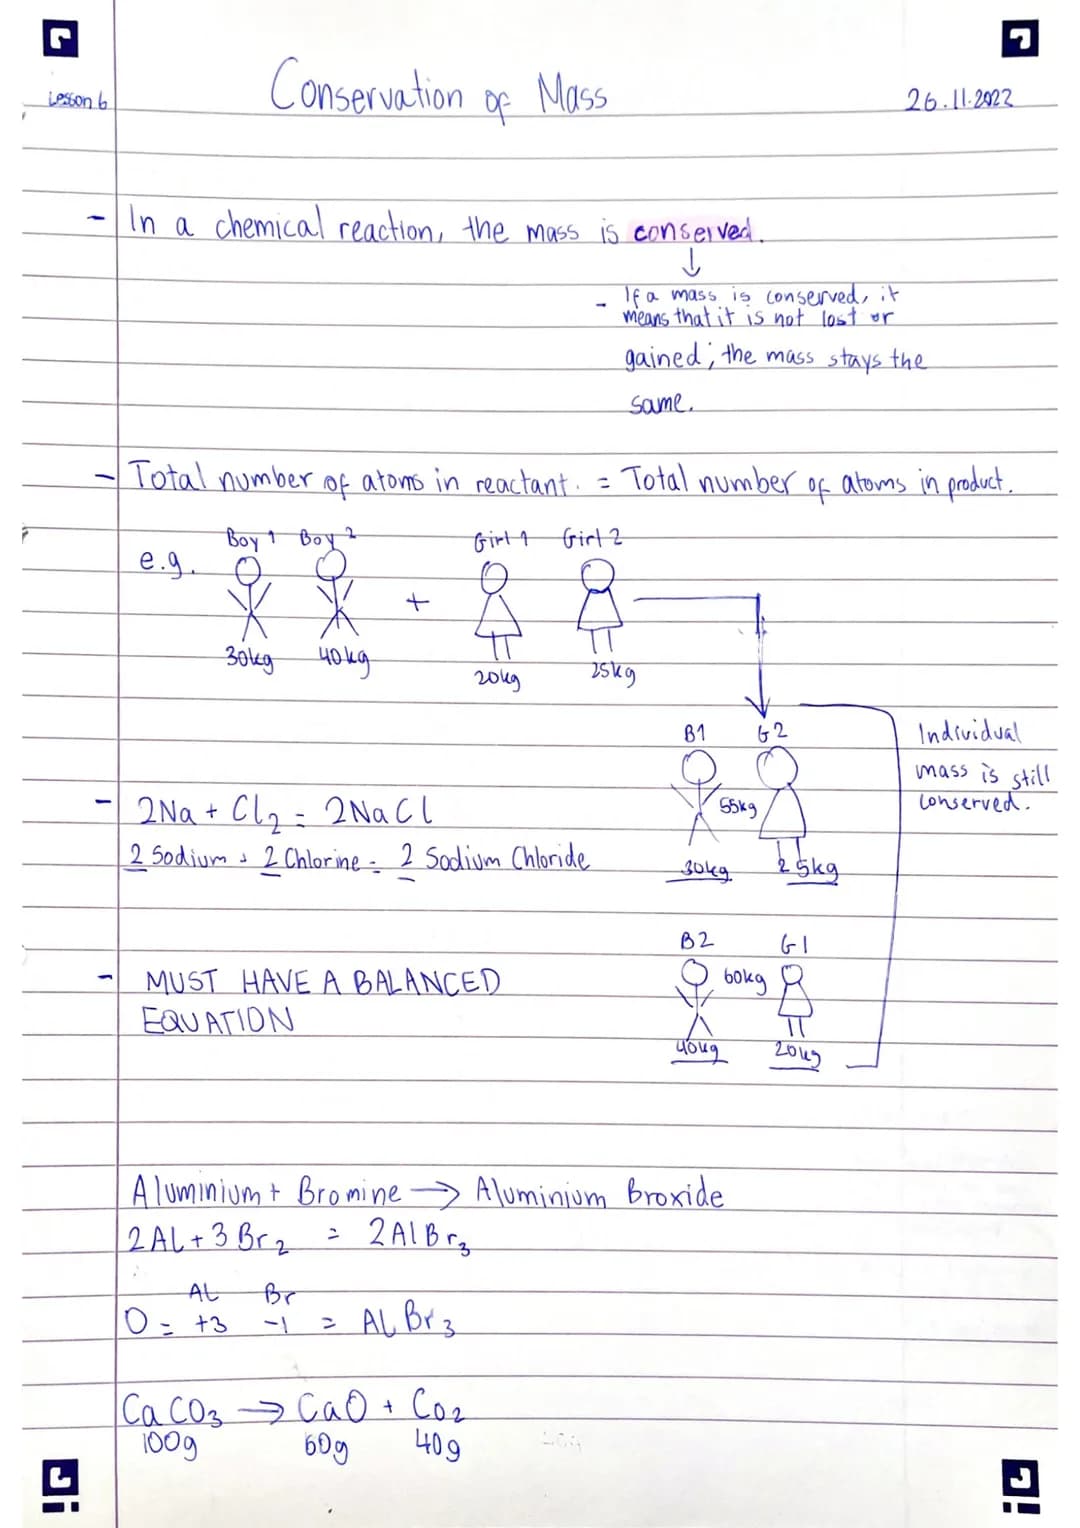 Lesson 6
Conservation of Mass
26.11.2022
- In a chemical reaction, the mass is conserved.
- If a mass is conserved, it
means that it is not lost or
gained; the mass stays the
same.
- Total number of atoms in reactant. = Total number of atoms in product.
e.g.
Boy 1 Boy 2 Girl 1 Girl 2
+
30kg 40kg 20kg 25kg
B1 G2
55kg
30kg 25kg
Individual
mass is still
conserved.
- 2Na + Cl2 = 2NaCl
2 Sodium + 2 Chlorine = 2 Sodium Chloride
B2 G1
60kg
40kg 20kg
- MUST HAVE A BALANCED
EQUATION
Aluminium + Bromine → Aluminium Broxide
2Al + 3Br2 = 2AlBr3
AL Br
O = +3 -1 = ALBr3
CaCO3 → CaO + Co2
100g 60g 40g